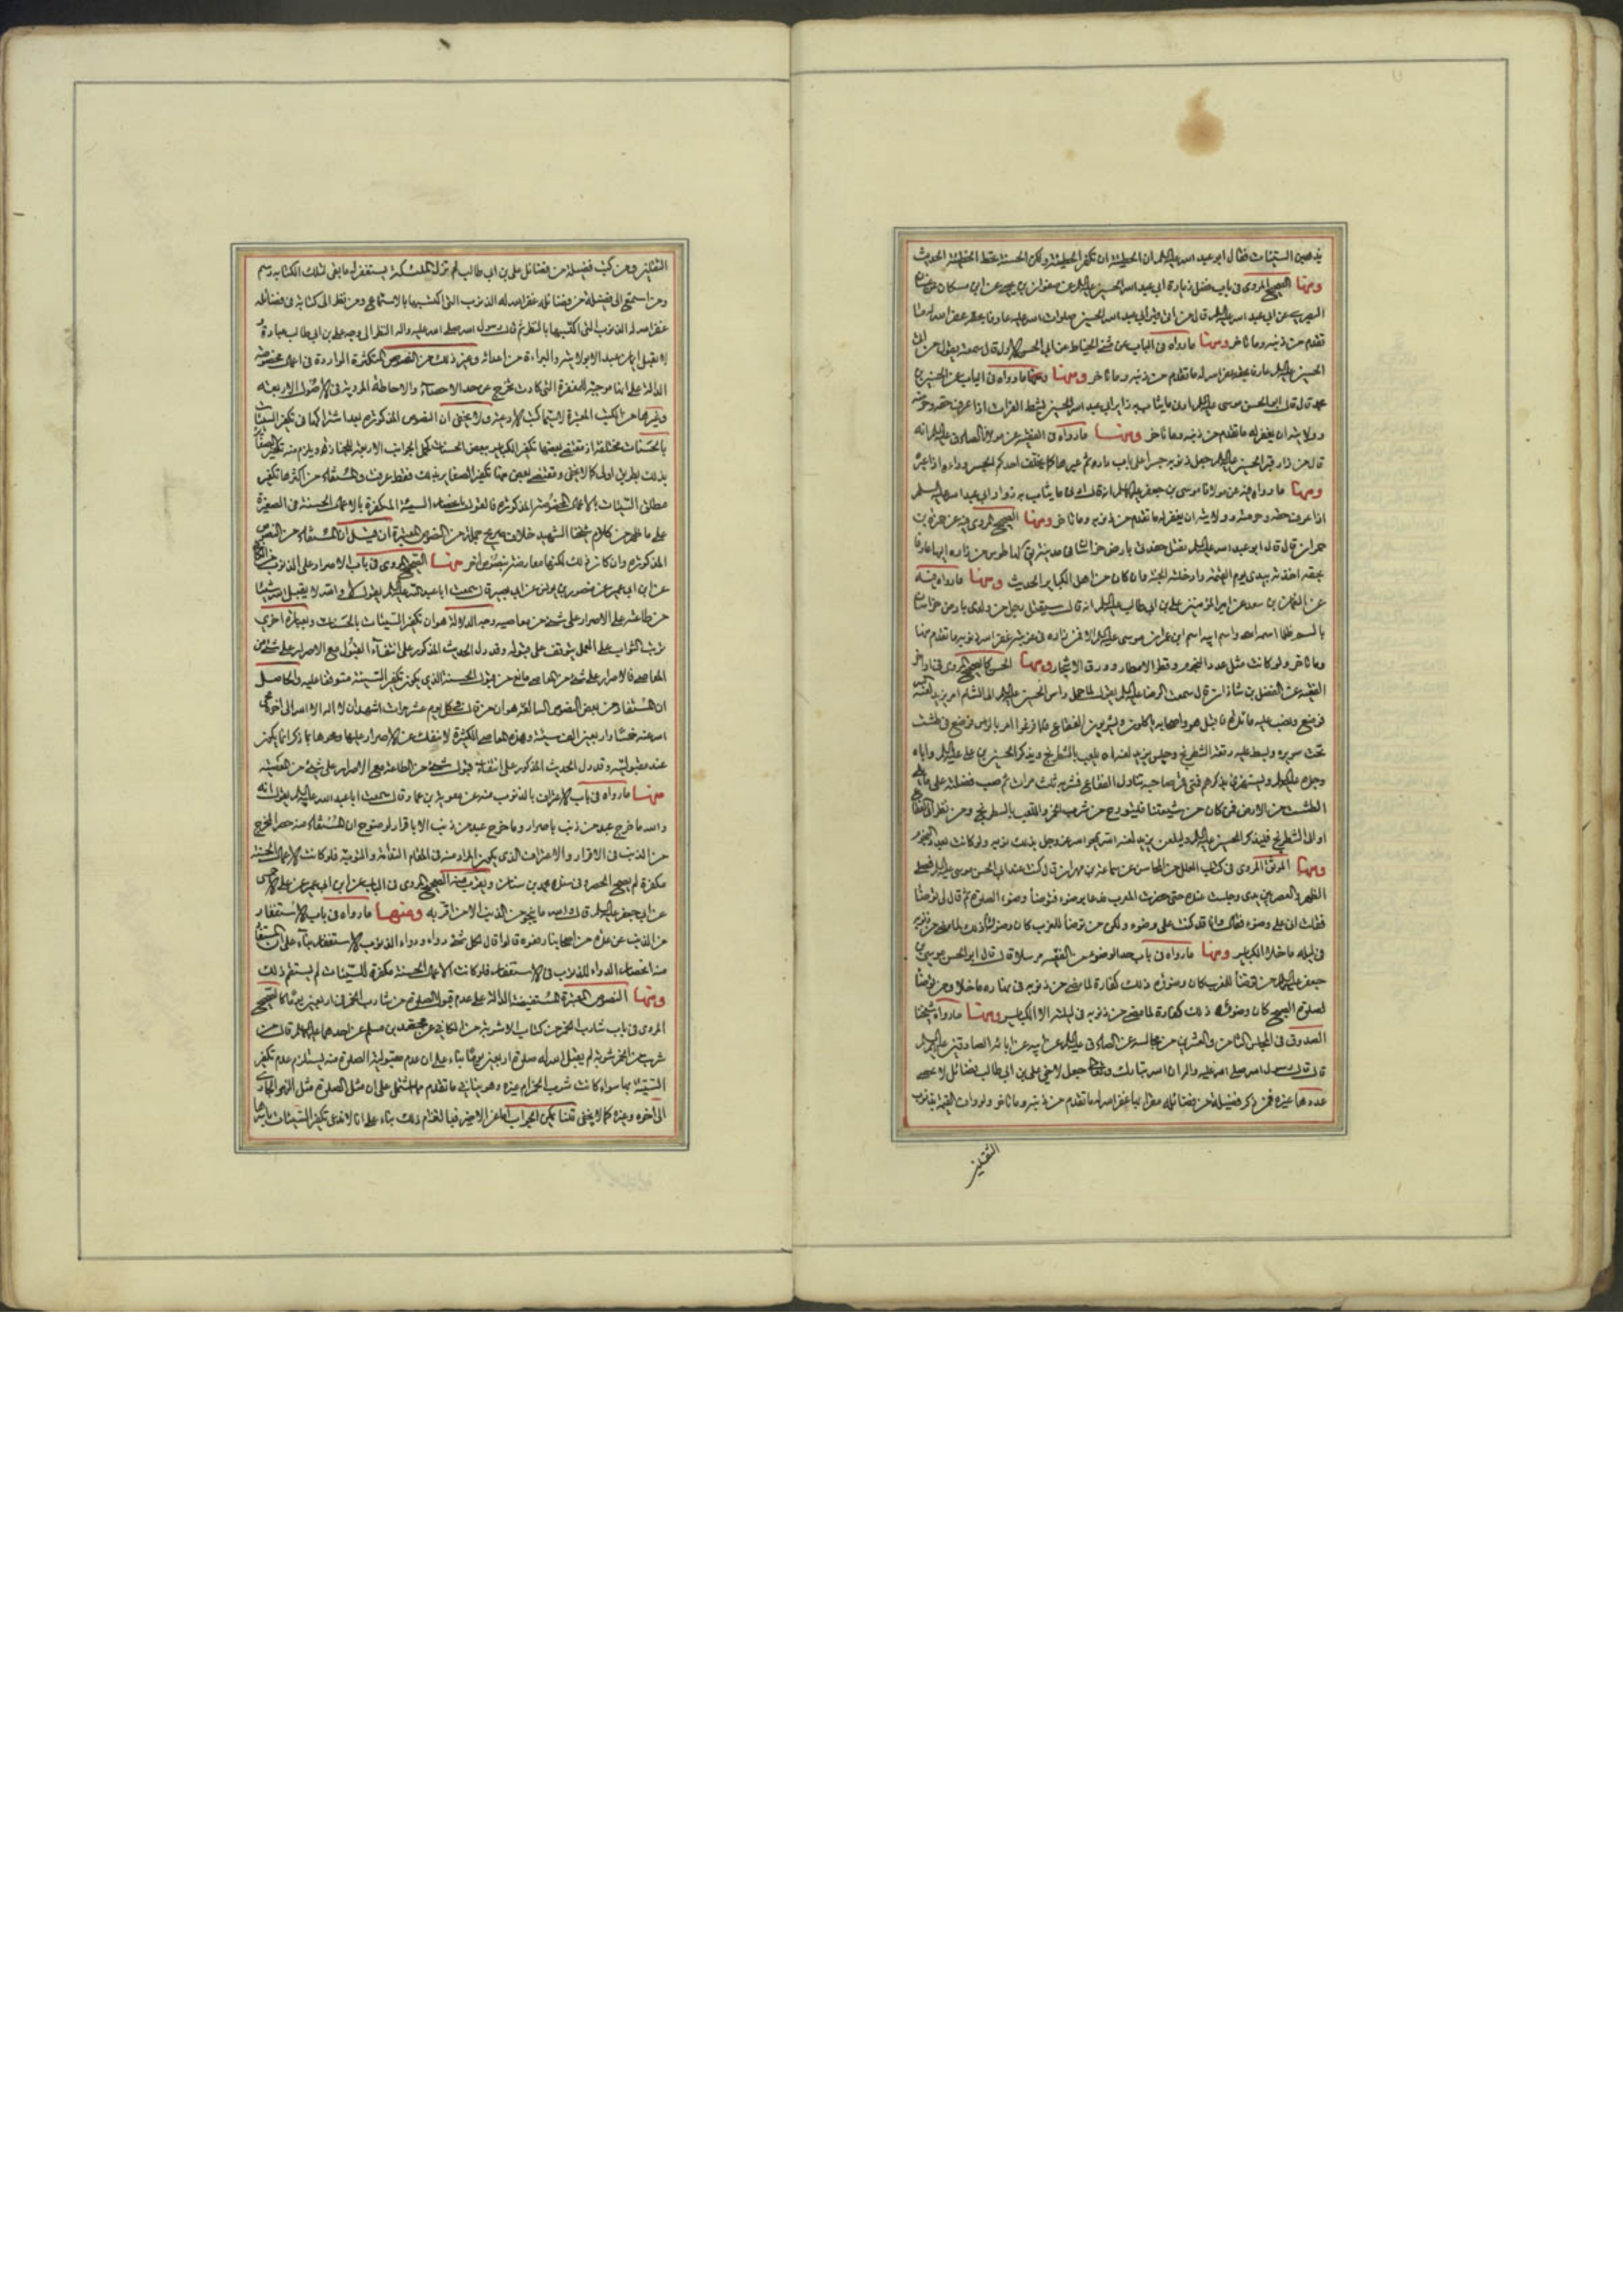 يذهبن السيئات فقال ابو عبد الله عليه السلم ان الخطيئة لا تكفر الخطيئة ولكن الحسنة تحط الخطيئة الحديث
ومنها الصحيح المروى فى باب فضل زيارة ابى عبد الله الحسين عليه السلم عن صفوان بن يحيى عن ابن مسكان عن
عن ابى عبد الله عليه السلم قال من اتى قبر ابى عبد الله الحسين صلوات الله عليه عارفا بحقه غفر الله له ما
تقدم من ذنبه وما تاخر ومنها ما رواه فى الباب عن مثنى الحناط عن ابى الحسن الاول قال سمعته يقول من اتى
الحسين عليه السلم عارفا بحقه غفر الله له ما تقدم من ذنبه وما تاخر ومنها ما رواه فى الباب عن الحسين بن
محمد قال قال ابو الحسن موسى عليه السلم ادنى ما يثاب به زاير ابى عبد الله الحسين بشط الفرات اذا عرف حقه وحرمته
وولايته ان يغفر له ما تقدم من ذنبه وما تاخر ومنها ما رواه فى الفقيه عن مولانا الصادق عليه السلم انه
قال من زار قبر الحسين عليه السلم جعل ذنوبه جسرا على باب داره ثم عبرها كما يخلف احدكم الجسر وراءه اذا عبر
ومنها ما رواه فيه عن مولانا موسى بن جعفر عليه السلم انه قال ادنى ما يثاب به زوار ابى عبد الله عليه السلم
اذا عرف حقه وحرمته وولايته ان يغفر له ما تقدم من ذنبه وما تاخر ومنها الصحيح المروى فيه عن حمزة بن
حمران قال قال ابو عبد الله عليه السلم يقتل حفدتى بارض خراسان فى مدينة يق لها طوس من زاره اليها عارفا
بحقه اخذته بيدى يوم القيمة وادخلته الجنة وان كان من اهل الكباير الحديث ومنها ما رواه فيه
عن النعمان بن سعد عن امير المؤمنين على بن ابى طالب عليه السلم انه قال سيقتل رجل من ولدى بارض خراسان
بالسم ظلما اسمه اسمى واسم ابيه اسم ابن عمران موسى عليه السلم الا فمن زاره فى غربته غفر الله ذنوبه ما تقدم منها
وما تاخر ولو كانت مثل عدد النجوم وقطر الامطار وورق الاشجار ومنها الحسن كالصحيح المروى فى اواخر
الفقيه عن الفضل بن شاذان قال سمعت الرضا عليه السلم يقول لما حمل راس الحسين عليه السلم الى الشام امر يزيد لعنه
فوضع ونصب عليه مائدة فاقبل هو واصحابه ياكلون ويشربون الفقاع فلما فرغوا امر بالراس فوضع فى طشت
تحت سريره وبسط عليه رقعة الشطرنج وجلس يزيد لعنه الله يلعب بالشطرنج ويذكر الحسين بن على عليه السلم واباه
وجده عليهم السلم ويستهزئ بذكرهم فمتى قمر صاحبه تناول الفقاع فشربه ثلث مرات ثم صب فضلته على ما يلى
الطشت من الارض فمن كان من شيعتنا فليتورع من شرب الفقاع واللعب بالشطرنج ومن نظر الى الفقاع
او الى الشطرنج فليذكر الحسين عليه السلم وليلعن يزيد لعنه الله يمحو الله عز وجل بذلك ذنوبه ولو كانت بعدد النجوم
ومنها الموثق المروى فى كتاب العلل عن سماعة بن مهران قال كنت عند ابى الحسن موسى عليه السلم فصلى
الظهر والعصر بين يدى وجلست عنده حتى حضرت المغرب فدعا بوضوء فتوضأ وضوء الصلوة ثم قال لى توضأ
فقلت انى على وضوء فقال وانا قد كنت على وضوء ولكن من توضأ للمغرب كان وضوئه ذلك كفارة لما مضى من ذنوبه
فى ليله ما خلا الكباير ومنها ما رواه فى باب حد الوضوء من الفقيه مرسلا قال قال ابو الحسن موسى بن
جعفر عليه السلم من توضأ للمغرب كان وضوئه ذلك كفارة لما مضى من ذنوبه فى نهاره ما خلا ومن توضأ
لصلوة الصبح كان وضوئه ذلك كفارة لما مضى من ذنوبه فى ليلته الا الكباير ومنها ما رواه شيخنا
الصدوق فى المجلس الثامن والعشرين من مجالسه عن الصادق عليه السلم عن ابيه عن ابائه الصادقين عليهم السلم
قال قال رسول الله صلى الله عليه واله ان الله تبارك وتعالى جعل لاخى على بن ابى طالب فضائل لا يحصى
عددها غيره فمن ذكر فضيلة من فضائله مقرا بها غفر الله له ما تقدم من ذنبه وما تاخر ولو وافى القيمة بذنوب
الثقلين
الثقلين ومن كتب فضيلة من فضائل على بن ابى طالب لم تزل الملئكة يستغفر له ما بقى لتلك الكتابة رسم
ومن استمع الى فضيلة من فضائله غفر الله له الذنوب التى اكتسبها بالاستماع ومن نظر الى كتابة فى فضائله
غفر الله له الذنوب التى اكتسبها بالنظر ثم قال رسول الله صلى الله عليه واله النظر الى وجه على بن ابى طالب عبادة
لا يقبل ايمان عبد الا بولايته والبراءة من اعدائه وغير ذلك من النصوص المتكثرة الواردة فى اعمال مخصوصة
الدالة على انها موجبة للمغفرة التى كادت تخرج عن حد الاحصاء والاحاطة المروية فى الاصول الاربعة
وغيرها من الكتب المعتبرة لا سيما كتب الادعية ولا يخفى ان النصوص المذكورة بعد اشتراكها فى تكفير السيئات
بالحسنات مختلفة اذ مقتضى بعضها تكفير الكباير ببعض الحسنات كحمل الجوانب الاربعة للجنازة ويلزم منه تكفير الصغاير
بذلك بطريق اولى كما لا يخفى ومقتضى بعض منها تكفير الصغاير بذلك فقط عرفت والمستفاد من اكثرها تكفير
مطلق السيئات بالاعمال المخصوصة المذكورة فالقول باختصاص السيئة المكفرة بالاعمال الحسنة فى الصغيرة
على ما ظهر من كلام شيخنا الشهيد خلاف صريح جملة من النصوص المعتبرة ان قيل ان المستفاد من النصوص
المذكورة وان كان ذلك لكنها معارضة بنصوص اخر منها الصحيح المروى فى باب الاصرار على الذنوب من الكافى
عن ابن ابى عمير عن منصور بن يونس عن ابى بصير قال سمعت ابا عبد الله عليه السلم يقول لا والله لا يقبل الله شيئا
من طاعته على الاصرار على شئ من معاصيه وجه الدلالة هو ان تكفير السيئات بالحسنات وبعبارة اخرى
ترتب الثواب على العمل يتوقف على قبوله وقد دل الحديث المذكور على انتفاء القبول مع الاصرار على شئ من
المعاصى فالاصرار على شئ من المعاصى مانع من قبول الحسنة الذى يكون تكفير السيئة متوقفا عليه والحاصل
ان المستفاد من بعض النصوص السالفة هو ان من قال فى كل يوم عشر مرات اشهد ان لا اله الا الله الى اخره محى
الله عنه خمسا واربعين الف سيئة وهذه المعاصى الكثيرة لا تنفك عن الاصرار عليها ومحوها بما ذكر انما يكون
عند مقبوليته وقد دل الحديث المذكور على انتفاء قبول شئ من الطاعة مع الاصرار على شئ من المعصية
منها ما رواه فى باب الاعتراف بالذنوب منه عن معوية بن عمار قال سمعت ابا عبد الله عليه السلم يقول انه
والله ما خرج عبد من ذنب باصرار وما خرج عبد من ذنب الا باقرار لوضوح ان المستفاد منه حصر المخرج
من الذنب فى الاقرار والاعتراف الذى يكون المراد منه فى المقام الندامة والتوبة فلو كانت الاعمال الحسنة
مكفرة لم يصح الحصر فى سنده محمد بن سنان ويقرب منه الصحيح المروى فى الباب عن ابن ابى عمير عن على الاحمسى
عن ابى جعفر عليه السلم قال والله ما ينجو من الذنب الا من اقر به ومنها ما رواه فى باب الاستغفار
من الذنب عن عدة من اصحابنا رفعوه قالوا قال لكل شئ دواء ودواء الذنوب الاستغفار بناء على ان المستفاد
منه انحصار الدواء للذنوب فى الاستغفار فلو كانت الاعمال الحسنة مكفرة للسيئات لم يستقم ذلك
ومنها النصوص المعتبرة المستفيضة الدالة على عدم قبول الصلوة من شارب الخمر فى اربعين يوما كالصحيح
المروى فى باب شارب الخمر من كتاب الاشربة من الكافى عن محمد بن مسلم عن احدهما عليهما السلم قال من
شرب من الخمر شربة لم يقبل الله له صلوة اربعين يوما بناء على ان عدم مقبولية الصلوة منه يستلزم عدم تكفير
السيئة بما سواء كانت شرب الخمر ام غيره وهو ينافى ما تقدم مما اشتمل على ان مثل الصلوة مثل النهر الجارى
الى اخره وغيره كما لا يخفى قلنا يمكن الجواب اما عن الاخير فبالتزام ذلك بناء على انا لا ندعى تكفير السيئات باسرها